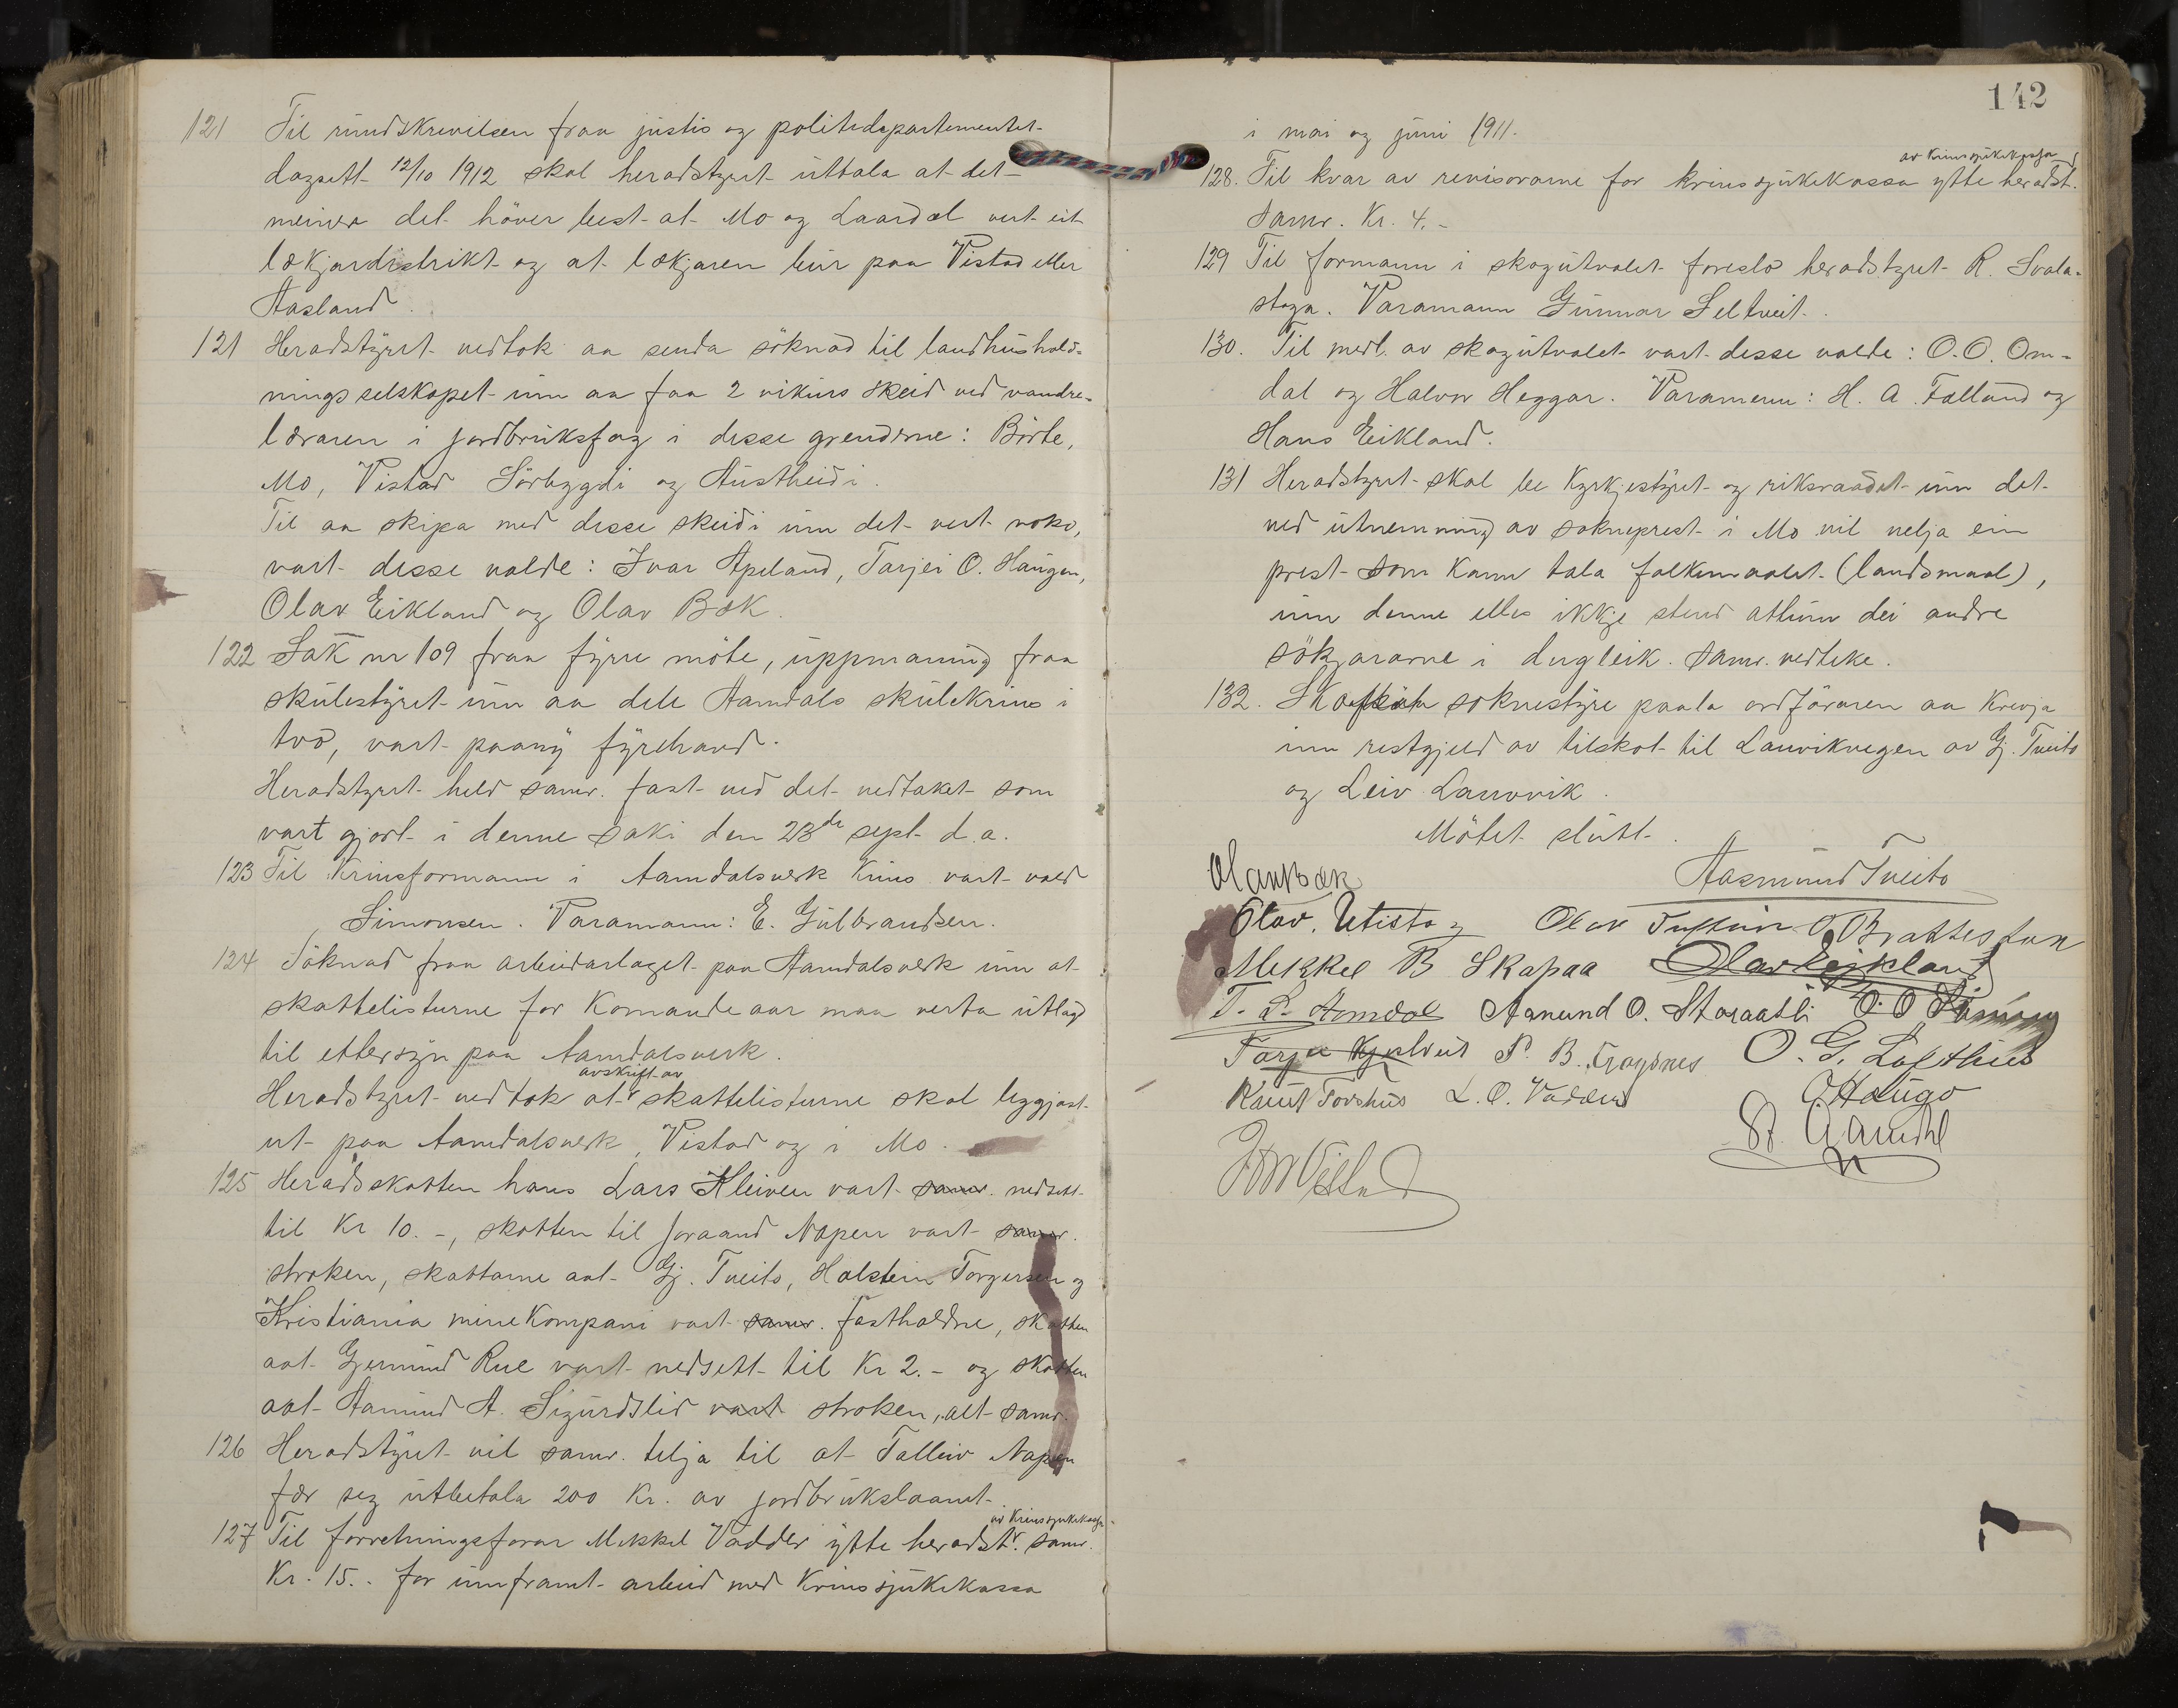 121 Til rundskrivelsen fraa justis og politidepartementet
dagsett 12/10 1912 skal heradstyret uttala at det
meiner det höver best at Mo og Laardal vert eit
lækjardistrikt og at lækjaren bur paa Vistad eller
Aasland.
121 Heradstyret vedtok aa senda söknad til landhushold-
nings selskapet um aa faa 2 vikurs skeid ved vandre-
læraren i jordbruksfag i desse grenderne: Börte,
Mo, Vistad Sörbygdi og Austheidi.
Til aa skipa med desse skeidi um det vert noko,
vart desse valde: Ivar Apeland, Tarjei O. Haugen,
Olav Eikland og Olav Bæk.
122 Sak nr 109 fraa fyrre möte, uppmaning fraa
skulestyret um aa dele Aamdals skulekrins i
tvo, vart paany fyrehavd.
Heradstyret held samr. fast ved det vedtaket som
vart gjort i denne saki den 23de sept d.a.
123 Til krinsformann i Aamdalsverk krins vart vald
Simonsen. Varamann: E. Gulbrandsen.
124 Söknad fraa arbeidarlaget paa Aamdalsverk um at
skattelisturne for komande aar maa verta utlagd
til ettersyn paa Aamdalsverk.
avskrift av
Heradstyret vedtok at skattelisturne skal leggjast
ut paa Aamdalsverk, Vistad og i Mo.
125 Heradsskatten hans Lars Kleiven vart samr. nedsett
til Kr 10.-, skatten til Joraand Napen vart samr.
stroken, skattarne aat Gj. Tveito, Halstein Torgersen og
Kristiania minekompani vart samr. fastholdne, skatten
aat Gjermund Rue vart nedsett til Kr 2.- og skatten
aat Aamund A. Sigurdslid vart stroken, alt samr.
126 Heradstyret vil samr. telja til at Talleiv Napen
fær seg utbetala 200 Kr. av jordbrukslaanet.
av krinssjukekassa
127 Til forretningsförar Mikkel Vadder ytte heradst. samr.
Kr. 15.- for umframt arbeid med krinssjukekassa
142
i mai og juni 1911.
av krinssjukekassa
128. Til kvar av revisorarne for krinssjukekassa ytte heradst.
samr. Kr. 4.-
129 Til formann i skogutvalet foreslo heradstyret R. Svala-
stoga. Varamann Gunnar Seltveit.
130. Til medl. av skogutvalet vart desse valde: O.O. Om-
dal og Halvor Heggar. Varamenn: H. A. Falland og
Hans Eikland.
131 Heradstyret skal be Kyrkjestyret og riksraadet um det
ved utnemning av sokneprest i Mo vil velja ein
prest som kann tala folkemaalet (landsmaal),
um denne elles ikkje stend attum dei andre
sökjararne i dugleik. Samr. vedteke.
132. Skafsaa soknestyre paala ordföraren aa krevja
inn restgjeld av tilskot til Lauvikvegen av Gj. Tveito
og Leiv Lauvvik.
Mötet slutt.
Olav Bæk Aasmund Tveito
Olav. Utistog Olav Tuftin O. Brattestan
Mikkel B Skapaa Olav Eikland
T. L. Aamdal Aanund O. Storaatli O. O.
Tarjei B. O. G. Lofthus
Knut Torshus L. O. Vadder O Haugo
St. Aamdal